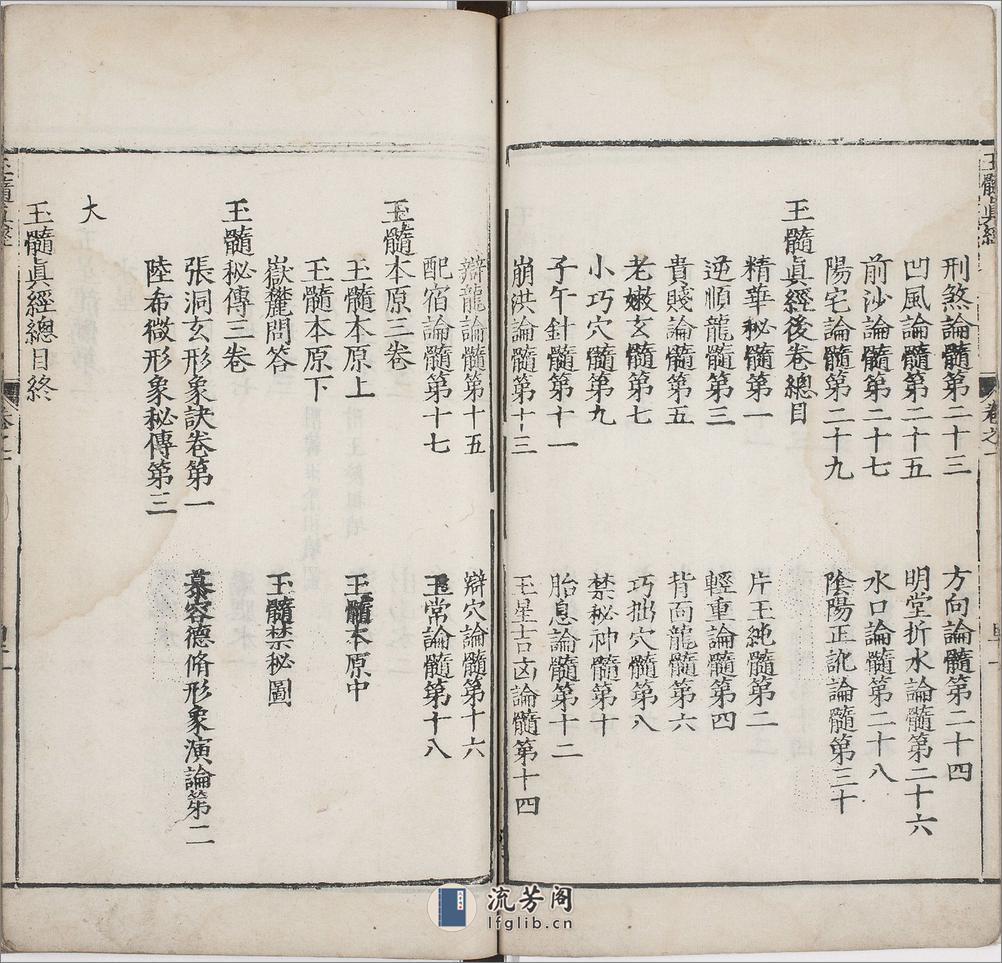 玉髓眞經
卷之一
刑煞論髓第二十三　方向論髓第二十四
凹風論髓第二十五　明堂折水論髓第二十六
前沙論髓第二十七　水口論髓第二十八
陽宅論髓第二十九　陰陽正訛論髓第三十
玉髓眞經後卷總目
精華秘髓第一　片玉純髓第二
逆順龍髓第三　輕重論髓第四
貴賤論髓第五　背面龍髓第六
老嫩玄髓第七　巧拙穴髓第八
小巧穴髓第九　禁秘神髓第十
子午針髓第十一　胎息論髓第十二
崩洪論髓第十三　五星吉凶論髓第十四
辯龍論髓第十五　辯穴論髓第十六
配宿論髓第十七　五常論髓第十八
玉髓本原三卷
玉髓本原上　玉髓本原中
玉髓本原下
嶽麓問答　玉髓禁秘圖
玉髓秘傳三卷
張洞玄形象訣卷第一　慕容德脩形象演論第二
陸希微形象秘傳第三
大
玉髓眞經總目終
玉髓眞經
卷之一
流芳阁
lfglib.cn